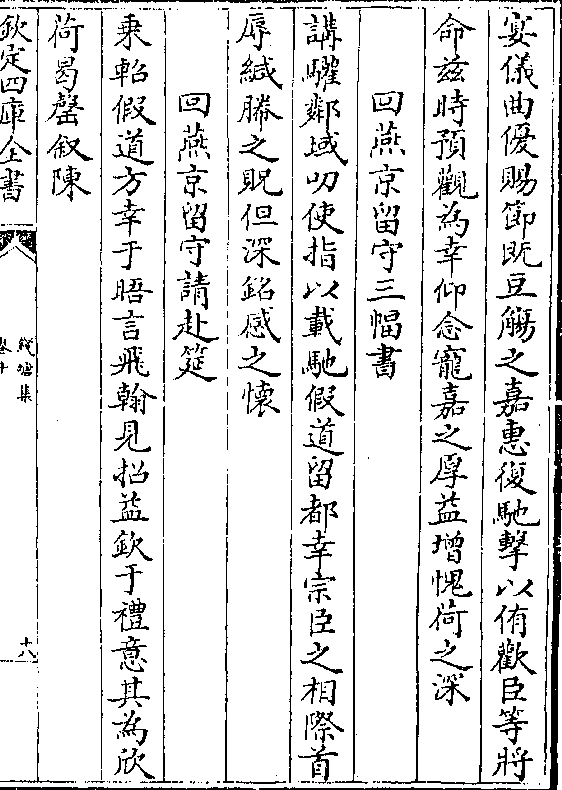 宴儀曲優賜篩既豆觴之嘉惠復馳擊以侑歡臣等將
命兹時預觀為幸仰念寵嘉之厚益增愧荷之深
回燕京留守三幅書
講驩鄰域叨使指以載馳假道留都幸宗臣之相際首
辱緘縢之貺但深銘感之懷
回燕京留守請赴筵
乘軺假道方幸于晤言飛翰見招益欽于禮意其為欣
荷曷罄叙陳
欽定四庫全書
卷十
十八